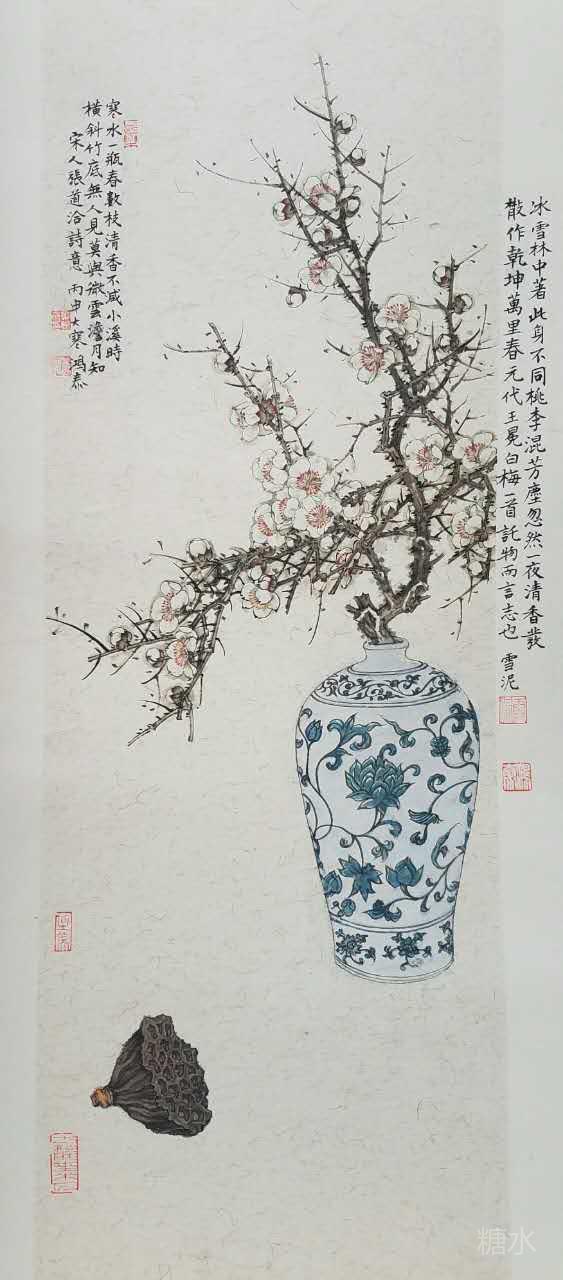 冰雪林中著此身不同桃李混芳塵忽然一夜清香發
散作乾坤萬里春元代王冕白梅一首託物而言志也 雪泥
寒水一瓶春數枝清香不減小溪時
橫斜竹底無人見莫與微雲澹月知
宋人張道洽詩意 丙申大寒鴻泰
糖水